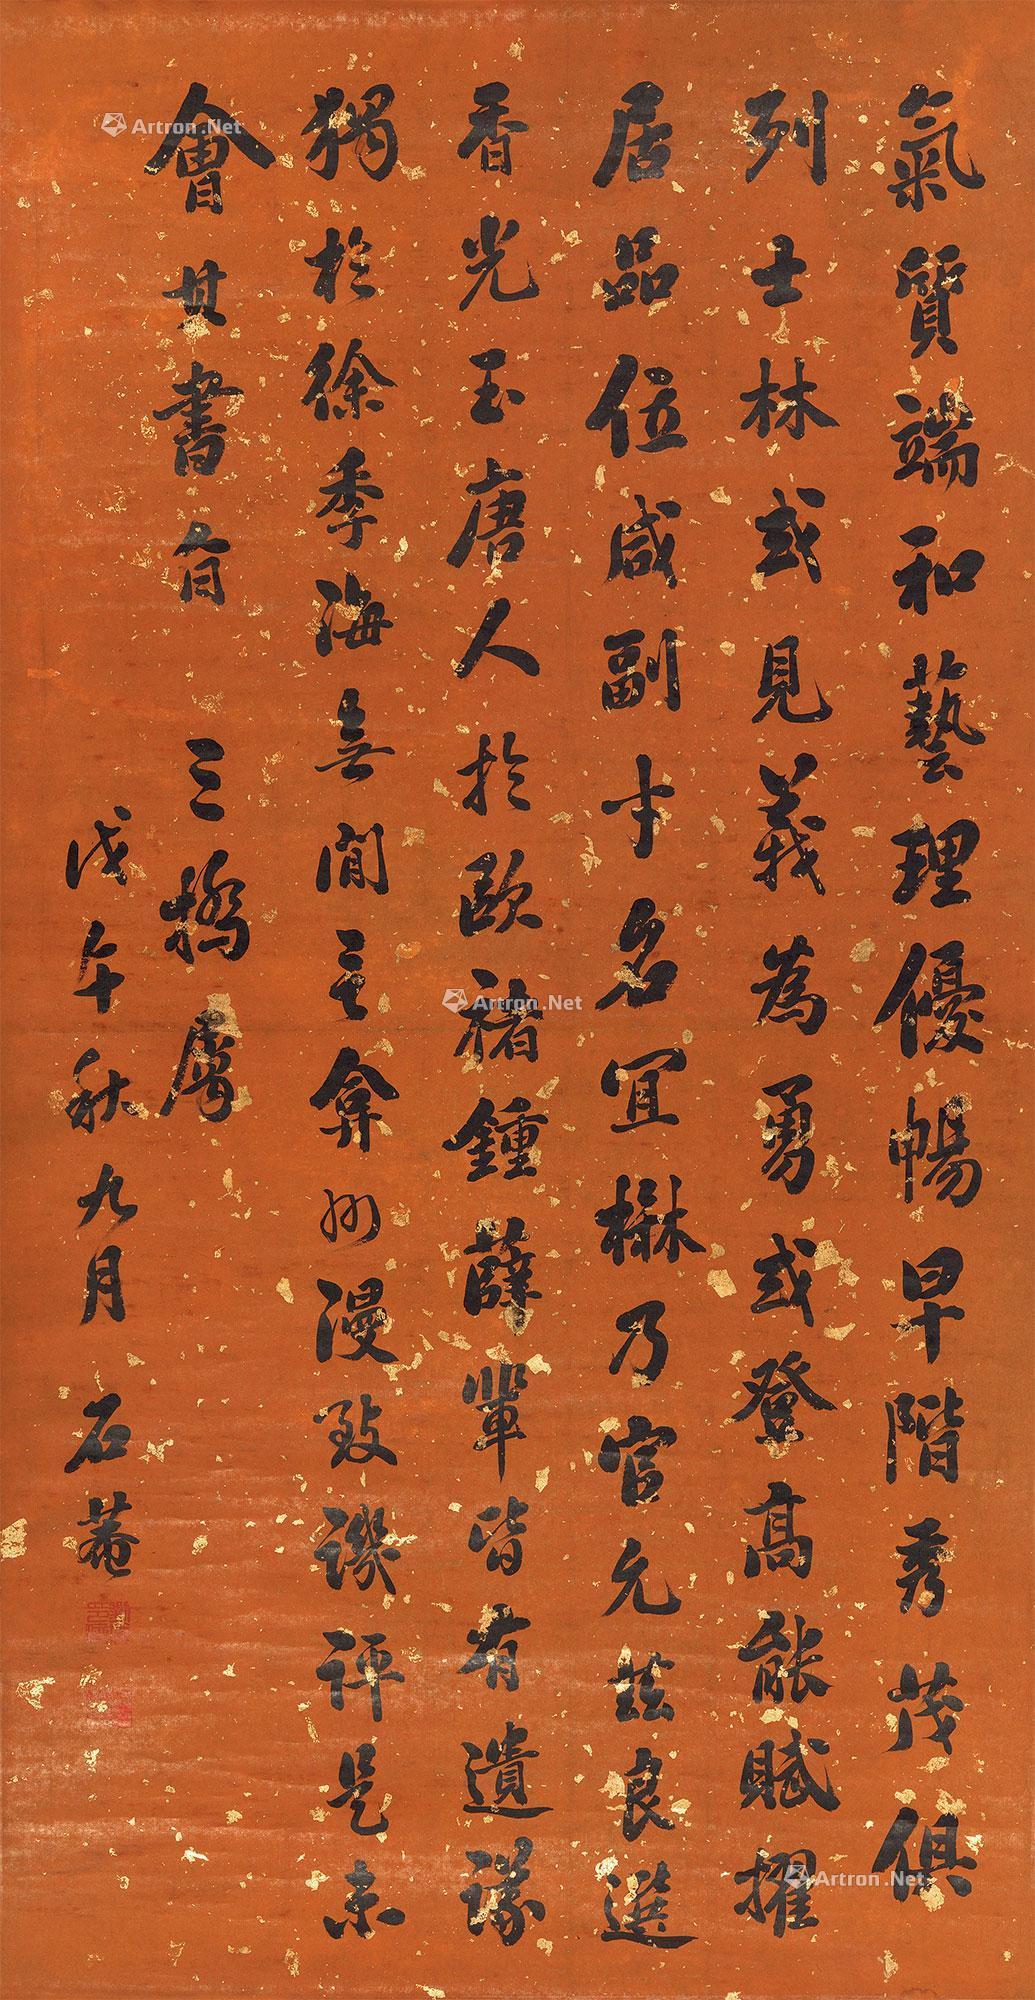 氣質端和藝理優暢早階秀茂俱
列士林或見義為勇或登高能賦擢
居品位咸副才名宜楙乃官允茲良選
香光玉唐人於歐褚鍾薛輩皆有遺議
獨於徐季海無間言弇州漫致譏評是未
會其書旨
三橋屬
戊午秋九月石菴
Artron.Net
Artron.Net
Artron.Net